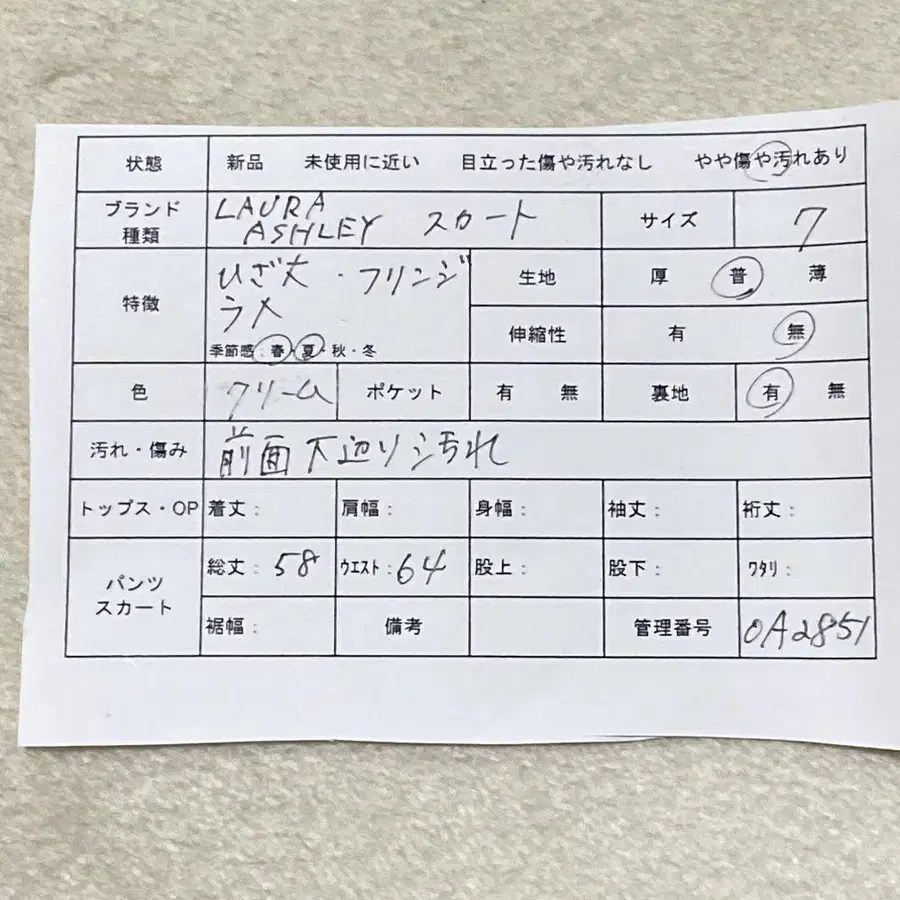 状態 新品 未使用に近い 目立った傷や汚れなし やや傷や汚れあり
ブランド 種類 LAURA ASHLEY スカート サイズ 7
特徴 ひざ丈・フリンジ
季節感:春・夏・秋・冬
生地 厚 普 薄
伸縮性 有 無
色 クリーム ポケット 有 無 裏地 有 無
汚れ・傷み 前面下辺り汚れ
トップス・OP 着丈: 肩幅: 身幅: 袖丈: 裄丈:
パンツ スカート 総丈: 58 ウエスト: 64 股上: 股下: ワタリ:
裾幅: 備考 管理番号 0A2851